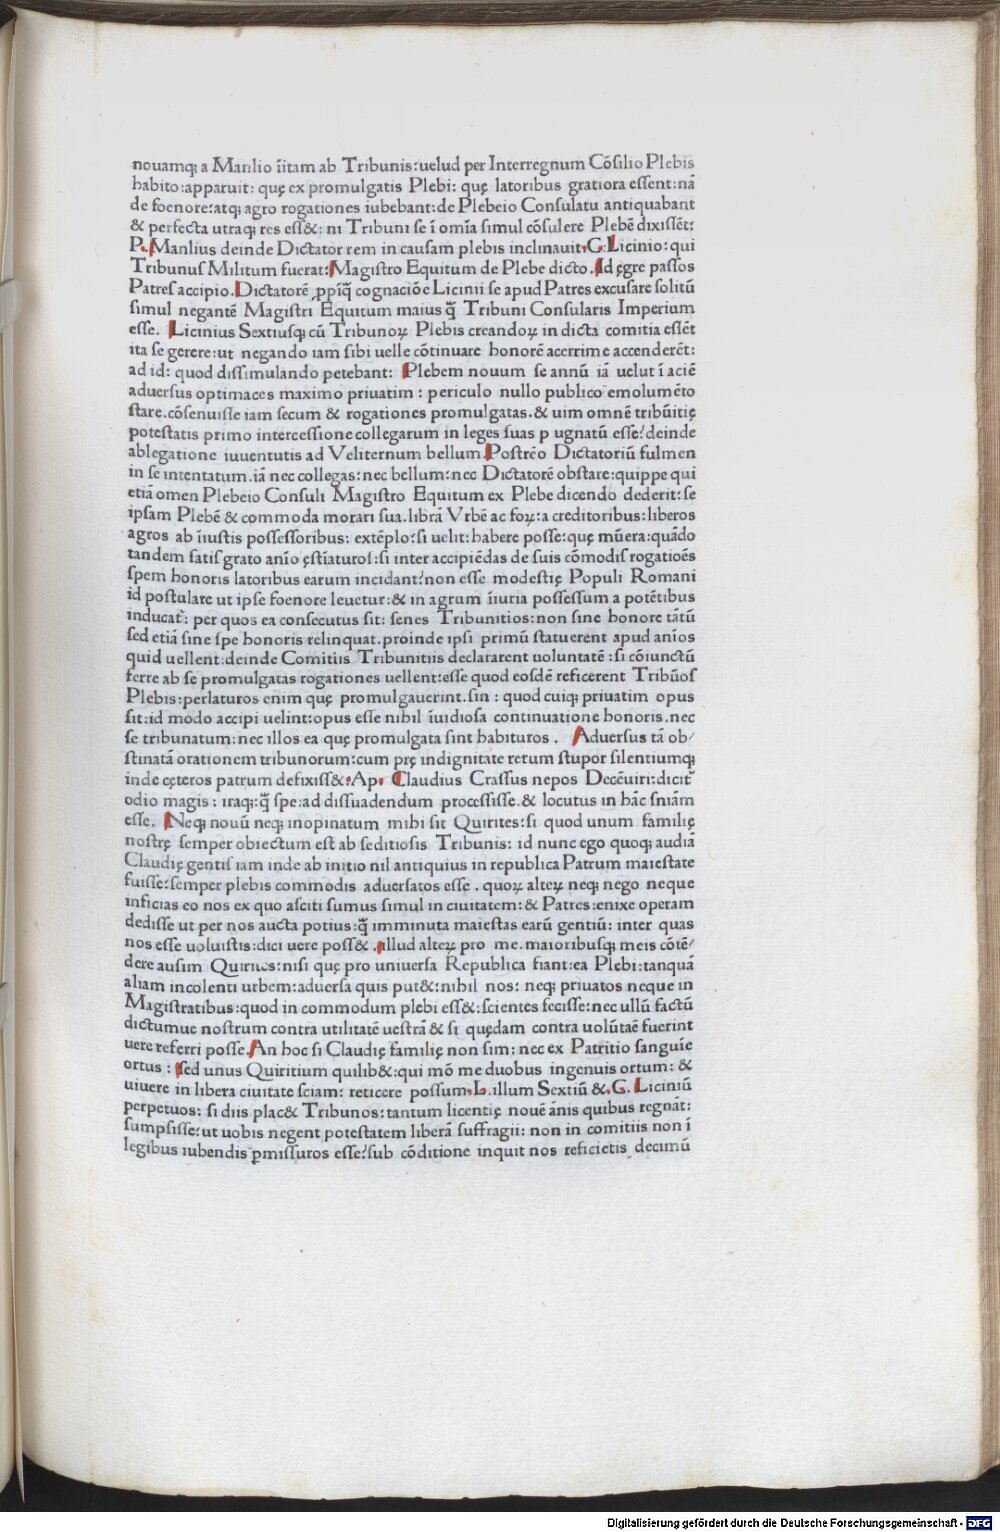 nouamq; a Manlio iītam ab Tribunis:uelud per Interregnum Cōſilio Plebis
habito:apparuit: quę ex promulgatis Plebi: quę latoribus gratiora eſſent:nā
de foenore:atq; agro rogationes iubebant:de Plebeio Conſulatu antiquabant
& perfecta utraq; res eſſ&: ni Tribuni ſe ī omīa ſimul cōſulere Plebē dixiſſēt:
P. Manlius deinde Dictator rem in cauſam plebis inclinauit. C. Licinio: qui
Tribunuſ Militum fuerat: Magiſtro Equitum de Plebe dicto. Id ęgre paſſos
Patreſ accipio. Dictatorē ꝓpīq̄ cognaciōe Licinii ſe apud Patres excuſare ſolitū
ſimul negantē Magiſtri Equitum maius q̄ Tribuni Conſularis Imperium
eſſe. Licinius Sextiuſq; cū Tribunoꝝ Plebis creandoꝝ in dicta comitia eſſēt
ita ſe gerere:ut negando iam ſibi uelle cōtinuare honorē acerrime accenderēt:
ad id: quod diſſimulando petebant: Plebem nouum ſe annū iā uelut ī aciē
aduerſus optimaces maximo priuatim : periculo nullo publico emolumēto
ſtare.cōſenuiſſe iam ſecum & rogationes promulgatas.& uim omnē tribūitię
poteſtatis primo interceſſione collegarum in leges ſuas p ugnatū eſſe:deinde
ablegatione iuuentutis ad Veliternum bellum Poſtrēo Dictatoriū fulmen
in ſe intentatum.iā nec collegas:nec bellum:nec Dictatorē obſtare:quippe qui
etiā omen Plebeio Conſuli Magiſtro Equitum ex Plebe dicendo dederit:ſe
ipſam Plebē & commoda morari ſua.librā Vrbē ac foꝝ:a creditoribus:liberos
agros ab iīuſtis poſſeſſoribus: extēplo:ſi uelit:habere poſſe:quę mūera:quādo
tandem ſatiſ grato anīo ęſtīaturoſ:ſi inter accipiēdas de ſuis cōmodiſ rogatioēs
ſpem honoris latoribus earum incidant:non eſſe modeſtię Populi Romani
id poſtulare ut ipſe foenore leuetur:& in agrum iīuria poſſeſſum a potētibus
inducat̄: per quos ea conſecutus ſit: ſenes Tribunitios:non ſine honore tātū
ſed etiā ſine ſpe honoris relinquat.proinde ipſi primū ſtatuerent apud anīos
quid uellent:deinde Comitiis Tribunitiis declararent uoluntatē :ſi cōiunctū
ferre ab ſe promulgatas rogationes uellent:eſſe quod eoſdē reficerent Tribūoſ
Plebis:perlaturos enim quę promulgauerint.ſin : quod cuiq; priuatim opus
ſit:id modo accipi uelint:opus eſſe nihil īuidioſa continuatione honoris.nec
ſe tribunatum:nec illos ea quę promulgata ſint habituros . Aduerſus tā ob/
ſtinatā orationem tribunorum:cum prę indignitate rerum ſtupor ſilentiumq;
inde cęteros patrum defixiſſ&:Ap. Claudius Craſſus nepos Decēuiri:dicit̄
odio magis : iraq;:q̄ ſpe:ad diſſuadendum proceſſiſſe.& locutus in hāc ſnīam
eſſe. Neq; nouū neq; inopinatum mihi ſit Quirites:ſi quod unum familię
noſtrę ſemper obiectum eſt ab ſeditioſis Tribunis: id nunc ego quoq; audiā
Claudię gentiſ iam inde ab initio nil antiquius in republica Patrum maieſtate
fuiſſe:ſemper plebis commodis aduerſatos eſſe . quoꝝ alteꝝ neq; nego neque
inficias eo nos ex quo aſciti ſumus ſimul in ciuitatem:& Patres:enixe operam
dediſſe ut per nos aucta potius:q̄ imminuta maieſtas earū gentiū: inter quas
nos eſſe uoluiſtis:dici uere poſſ& . illud alteꝝ pro me.maioribuſq; meis cōtē/
dere auſim Quirites:niſi quę pro uniuerſa Republica fiant:ea Plebi:tanquā
aliam incolenti urbem:aduerſa quis put&:nihil nos: neq; priuatos neque in
Magiſtratibus:quod in commodum plebi eſſ&:ſcientes feciſſe:nec ullū factū
dictumue noſtrum contra utilitatē ueſtrā & ſi quędam contra uolūtaē fuerint
uere referri poſſe. An hoc ſi Claudię familię non ſim: nec ex Patritio ſanguīe
ortus : ſed unus Quiritium quilib&:qui mō me duobus ingenuis ortum: &
uiuere in libera ciuitate ſciam: reticere poſſum. L. illum Sextiū &. C. Liciniū
perpetuos: ſi diis plac& Tribunos:tantum licentię nouē ānis quibus regnāt:
ſumpſiſſe:ut uobis negent poteſtatem liberā ſuffragii: non in comitiis non ī
legibus iubendis ꝑmiſſuros eſſe:ſub cōditione inquit nos reficietis decimū
Digitalisierung gefördert durch die Deutsche Forschungsgemeinschaft - DFG